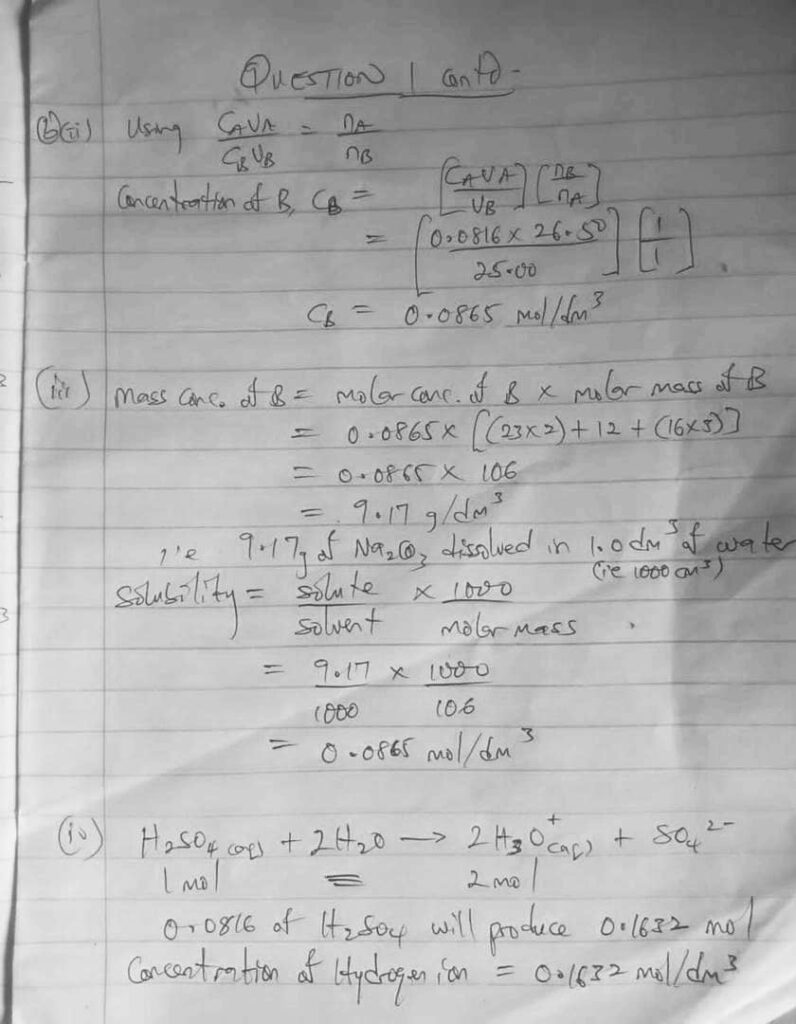 QUESTION 1 Contd -
(b)(ii) Using CAVA/CBVB = nA/nB
Concentration of B, CB = [CAVA/VB] [nB/nA]
= [0.0816 x 26.50/25.00] [1/1]
CB = 0.0865 mol/dm³
(iii) Mass conc. of B = molar conc. of B x molar mass of B
= 0.0865 x [(23x2) + 12 + (16x3)]
= 0.0865 x 106
= 9.17 g/dm³
i.e 9.17g of Na2CO3 dissolved in 1.0 dm³ of water
(i.e 1000 cm³)
Solubility = solute/solvent x 1000/molar mass
= 9.17/1000 x 1000/106
= 0.0865 mol/dm³
(iv) H2SO4(aq) + 2H2O → 2H3O+(aq) + SO4²-
1 mol = 2 mol
0.0816 of H2SO4 will produce 0.1632 mol
Concentration of Hydrogen ion = 0.1632 mol/dm³